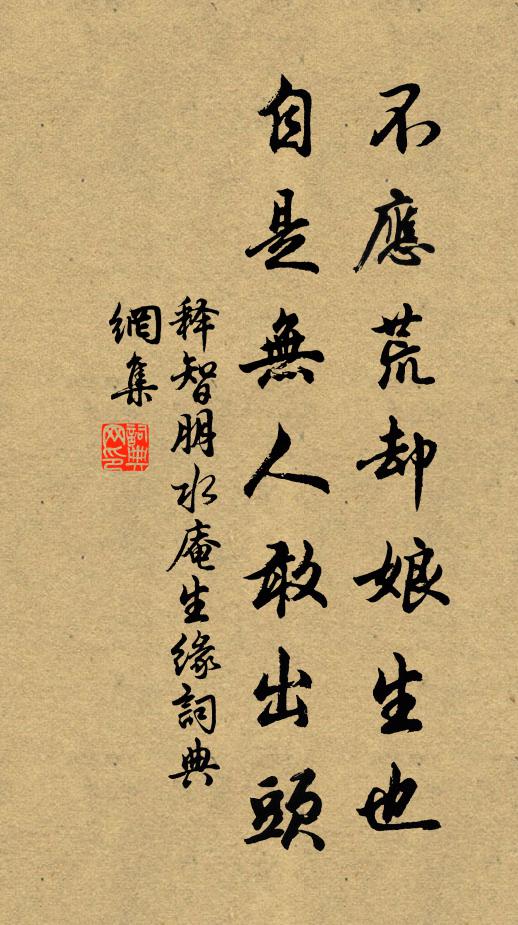 不應荒却娘生也
自是無人敢出頭
释智朋水庵生缘詞典
網集
詞典
网印